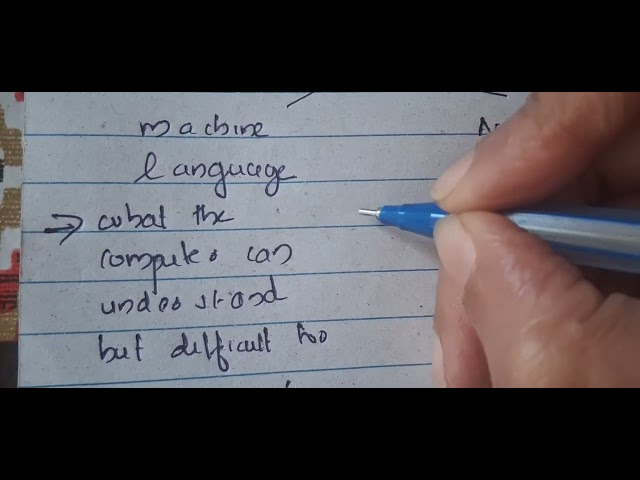 machine
language
⇒ what the
computer can
understand
but difficult too